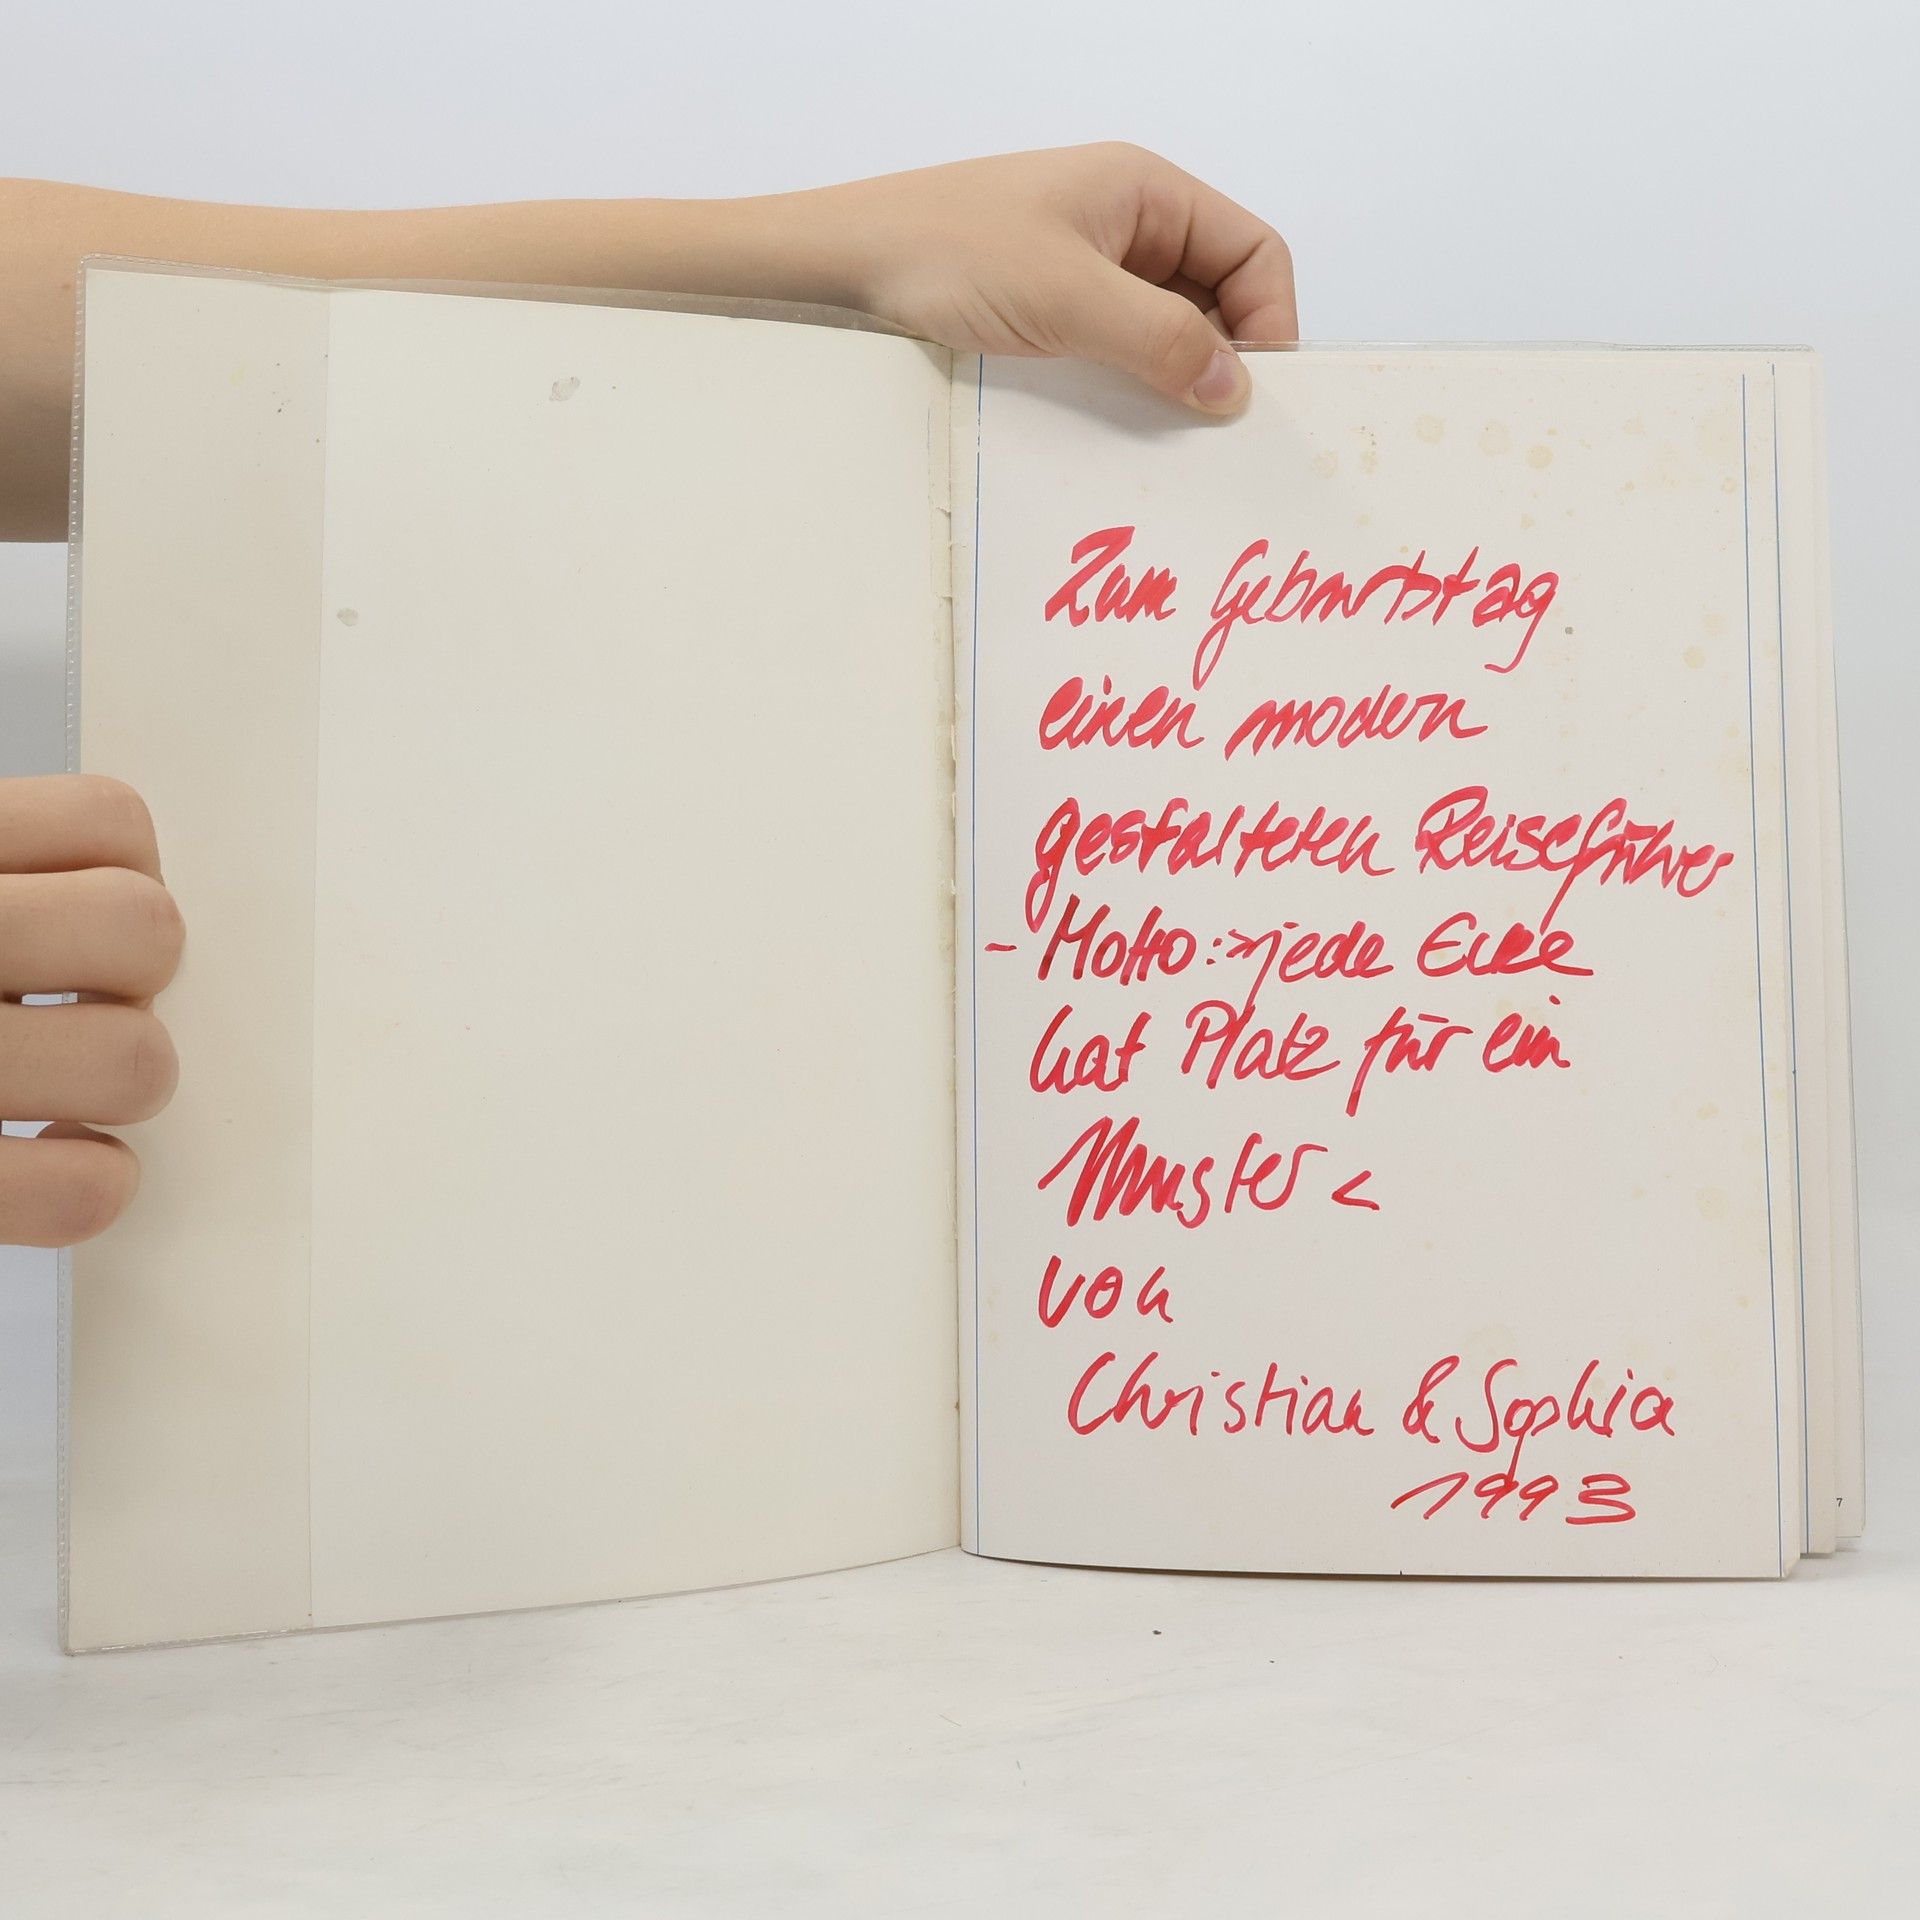 Zum Geburtstag
einen modern
gestalteten Reiseführer
- Motto: >jede Ecke
hat Platz für ein
Muster<
von
Christian & Sophia
1993
7